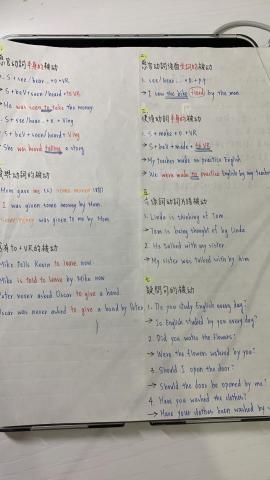 感官動詞本身的被動
S + see / hear... + O + VR
→ S + beV + seen / heard + to VR
→ He was seen to take the money.
S + see / hear... + O + Ving
S + beV + seen / heard + Ving
She was heard telling a story.
授與動詞的被動
Mom gave me some money
I was given some money by Mom.
Some money was given to me by Mom.
to + VR的被動
Mike tells Kevin to leave now
Mike is told to leave by Mike now
Peter never asked Oscar to give a hand.
Oscar was never asked to give a hand by Peter.
感官動詞後面受詞的被動
1. see / hear... + O + p.p
→ I saw the bike fixed by the man.
使役動詞本身的被動
1. S + make + O + VR
→ S + beV + made + to VR
→ My teacher makes me practice English
→ We were made to practice English by my teacher
五
片語動詞的被動
1. Linda is thinking of Tom.
→ Tom is being thought of by Linda
2. He talked with my sister
→ My sister was talked with by him
七
疑問句的被動
1. Do you study English every day?
→ Is English studied by you every day?
2. Did you water the flowers?
→ Were the flowers watered by you?
3. Should I open the door?
→ Should the door be opened by me?
4. Have you washed the clothes?
→ Have your clothes been washed by